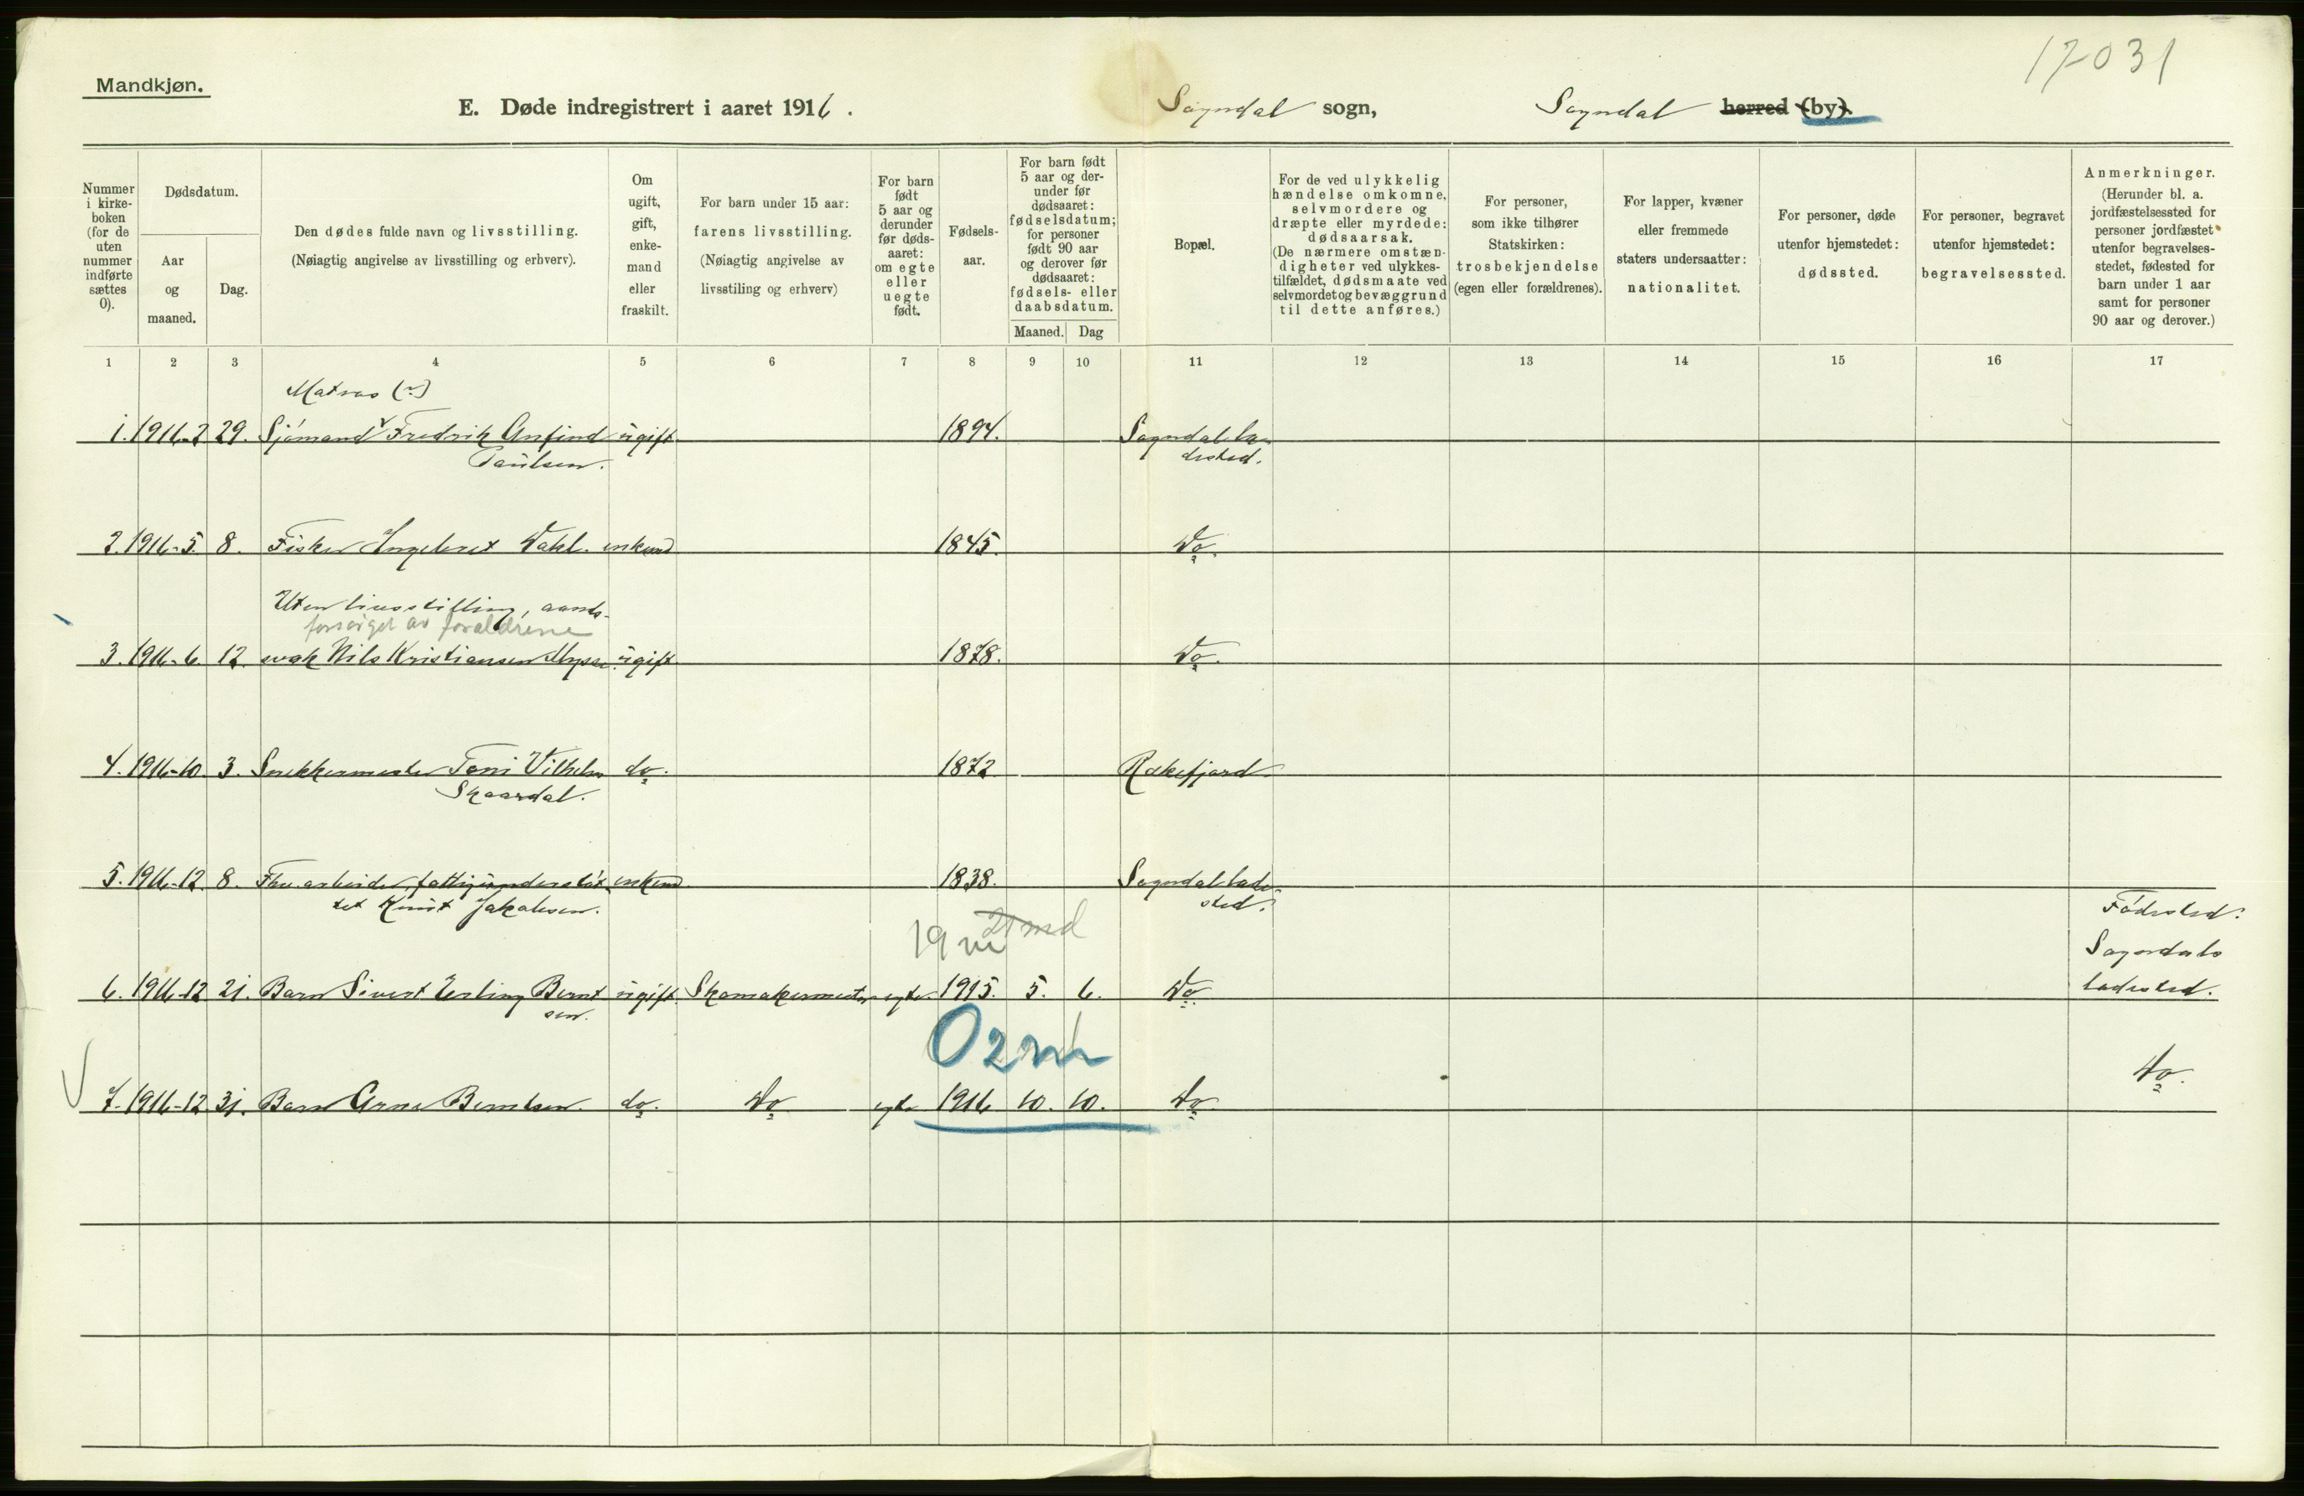 17031
Mandkjøn.
E. Døde indregistrert i aaret 1916.
Sogndal sogn,
Sogndal herred (by).
Nummer i kirke-boken (for de uten nummer indførte sættes 0).
Dødsdatum.
Aar og maaned.
Dag.
Den dødes fulde navn og livsstilling.
(Nøiagtig angivelse av livsstilling og erhverv).
Om ugift, gift, enke-mand eller fraskilt.
For barn under 15 aar:
farens livsstilling.
(Nøiagtig angivelse av
livsstiling og erhverv)
For barn født 5 aar og derunder før døds-aaret: om egte eller uegte født.
Fødsels-aar.
For barn født 5 aar og der-under før dødsaaret: fødselsdatum; for personer født 90 aar og derover før dødsaaret: fødsels- eller daabsdatum.
Maaned. Dag
Bopæl.
For de ved ulykkelig hændelse omkomne, selvmordere og dræpte eller myrdede: dødsaarsak.
(De nærmere omstæn-digheter ved ulykkes-tilfældet, dødsmaate ved selvmordet og bevæggrund til dette anføres.)
For personer, som ikke tilhører Statskirken: trosbekjendelse (egen eller forældrenes).
For lapper, kvæner eller fremmede staters undersaatter: nationalitet.
For personer, døde utenfor hjemstedet: dødssted.
For personer, begravet utenfor hjemstedet: begravelsessted.
Anmerkninger.
(Herunder bl. a. jordfæstelsessted for personer jordfæstet utenfor begravelses-stedet, fødested for barn under 1 aar samt for personer 90 aar og derover.)
1 2 3 4 5 6 7 8 9 10 11 12 13 14 15 16 17
Matros (?)
1. 1916-2 29. Sjömand Fredrik Anfind ugift 1894. Sogndal la-
Paulsen. dested.
2. 1916-5. 8. Fisker Ingebret Dahl. enkem 1845. Do.
Uten livsstilling, aands-
forsörget av forældrene
3. 1916-6. 12. svak Nils Kristiansen ugift 1878. Do.
4. 1916-10. 3. Snekkermester Toni Vilhelm do. 1872 Rekefjord.
Skaardal.
5. 1916-12. 8. Fhv. arbeider, fattigunderstöt- enkem 1838. Sogndal lade-
tet Knut Jakobsen. sted.
19 m 21 md
Födested:
Sogndals
ladested.
6. 1916-12 21. Barn Sivert Erling Bernt- ugift. Skomakermester egte. 1915. 5. 6. Do.
sen.
0 2 m
7. 1916-12 31. Barn Arne Berntsen. do. Do egte 1916 10. 10. Do. Do.